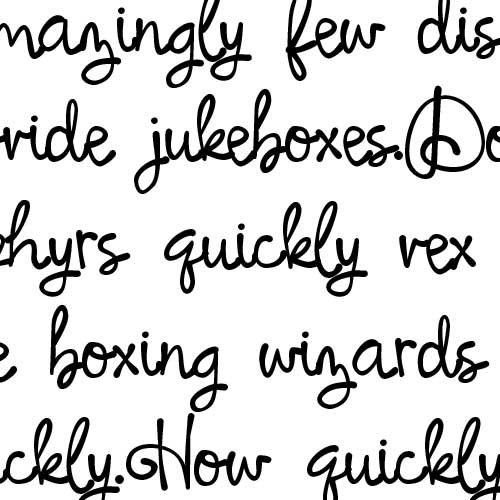 mazingly few dis
vide jukeboxes.Do
phyrs quickly vex
e boxing wizards
ckly.How quickly